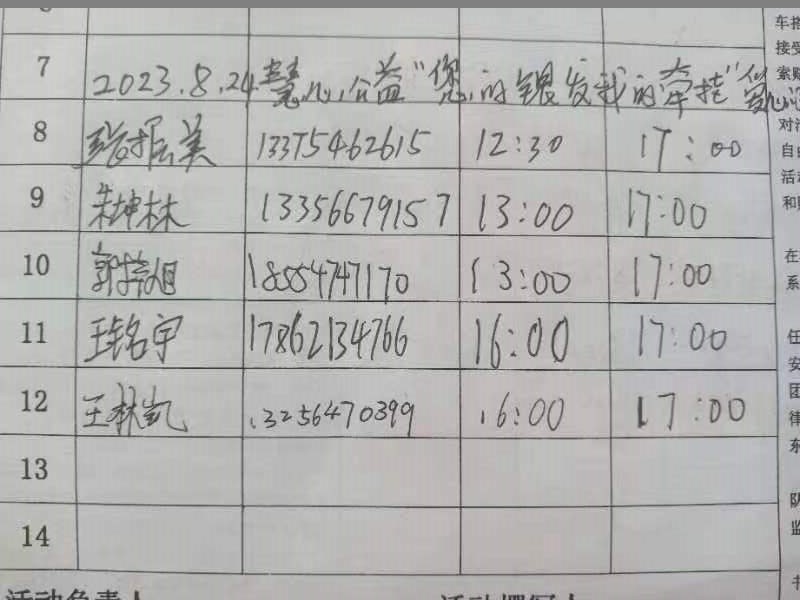 7 2023.8.24.慧心公益"您的银发我的牵挂"
8 振美 13375462615 12:30 17:00
9 朱坤林 13356679157 13:00 17:00
10 郭 18554747170 13:00 17:00
11 王铭宇 17862134766 16:00 17:00
12 王林凯 13256470399 16:00 17:00
13
14
活动负责人
接受
索
对
自由
活动
和
在
系
任
安
团
律
东
队
监
书